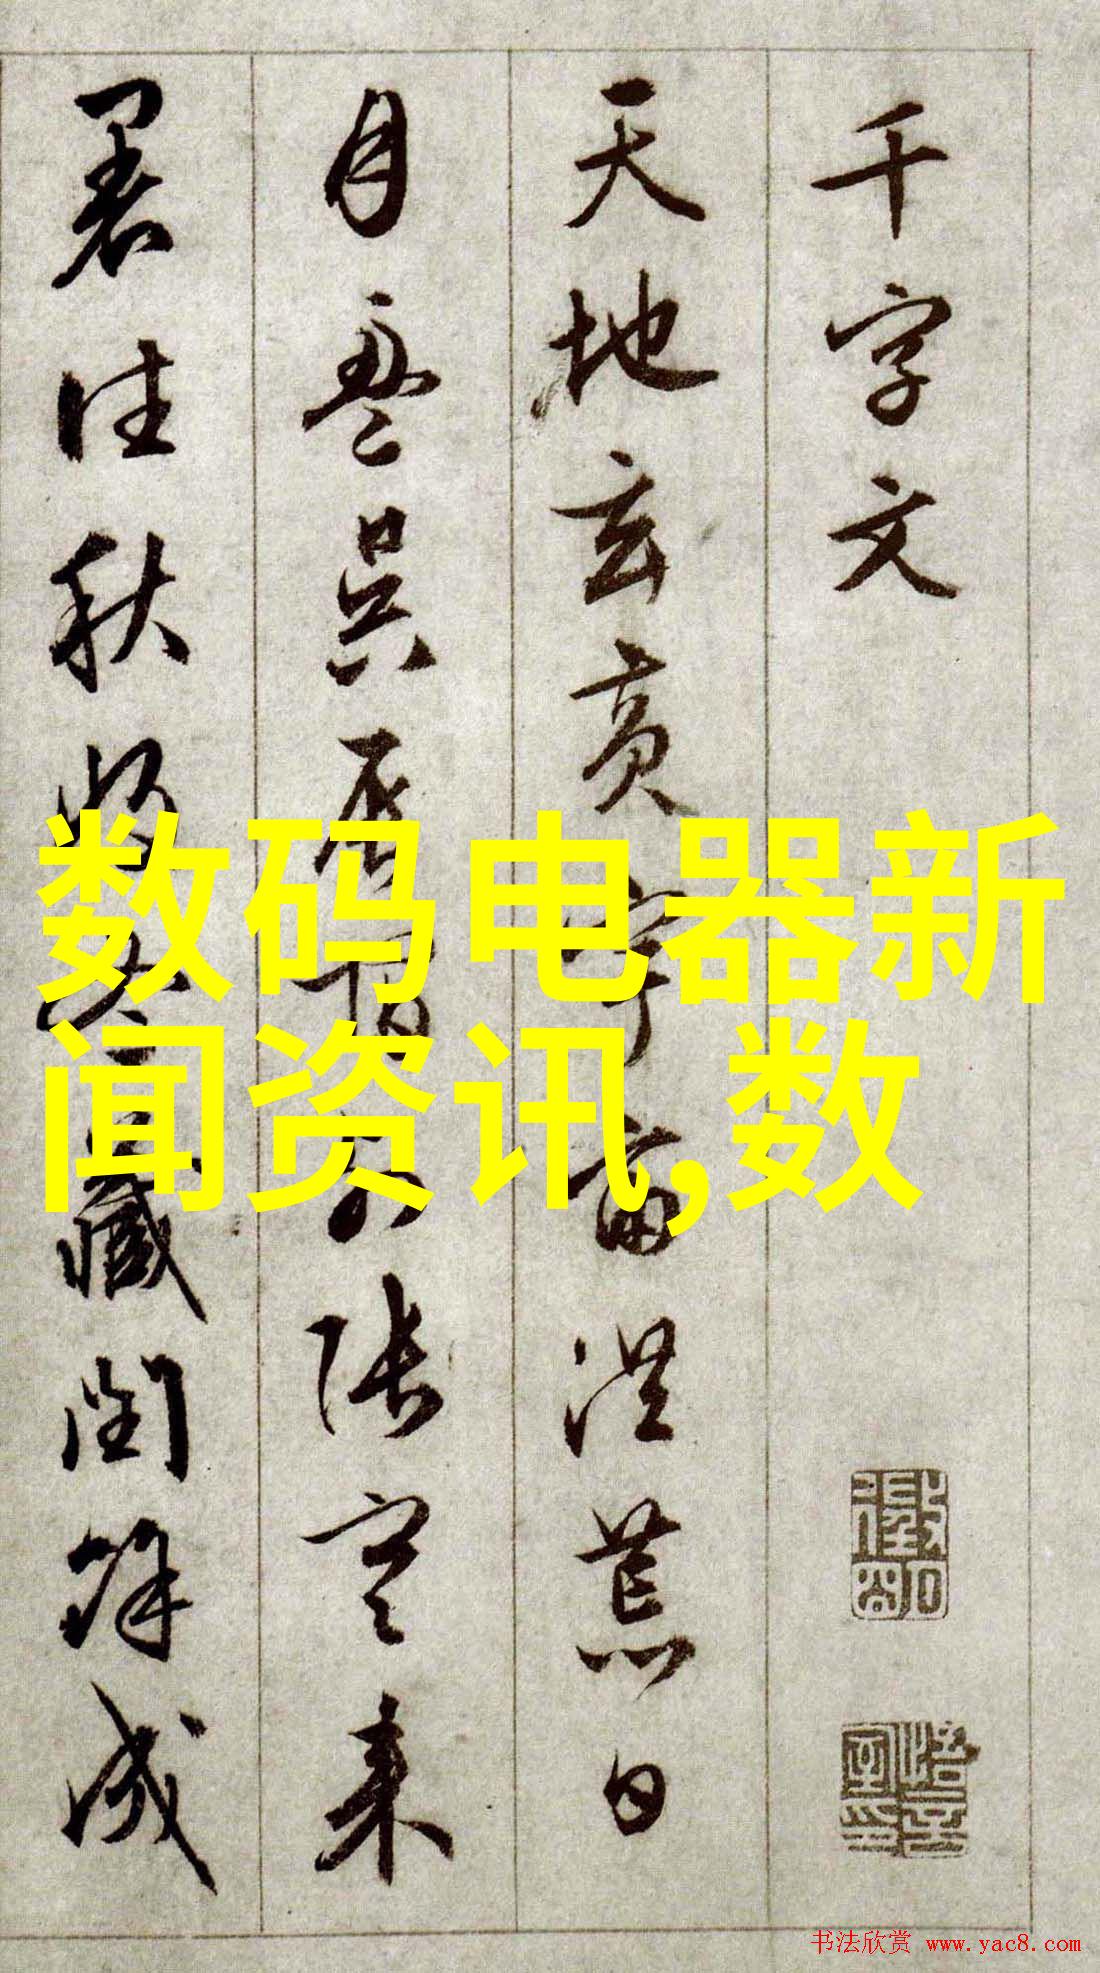 千字文
天地玄黄宇宙洪荒日
月盈昃辰宿列張寒来
暑往秋收冬藏閏餘成
数码电器新
闻资讯,数
书法欣赏 www.yac8.com